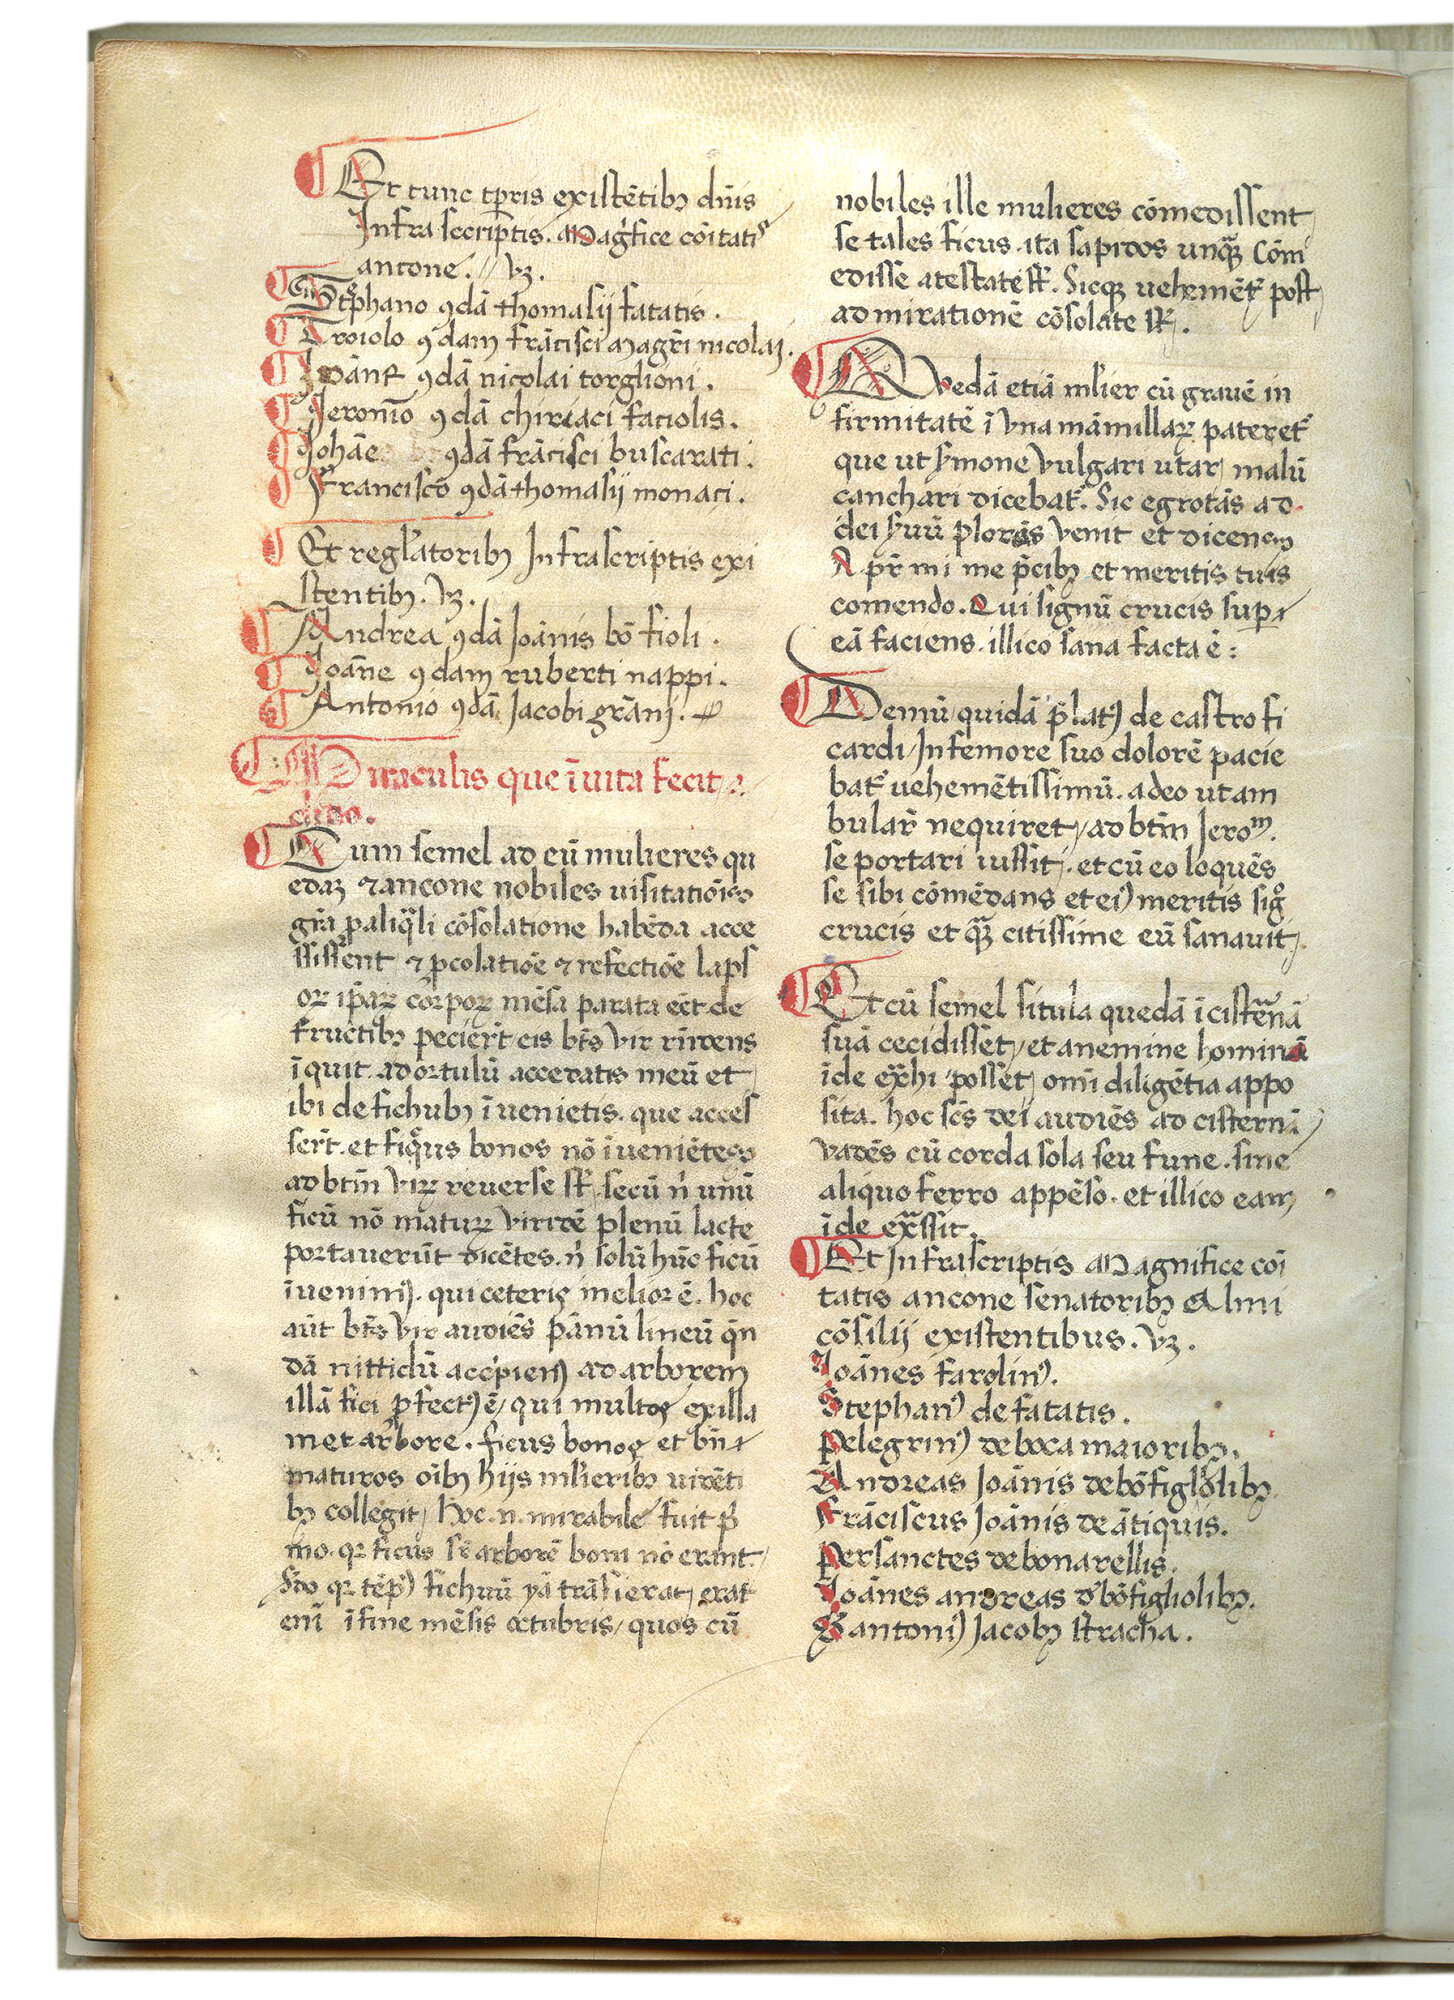 Et tunc tp̄ris existētibꝫ dn̄is
Infrascriptis. Magᷤfice cōitatis
ancone. // vꝫ.
Stephano ꝯdā thomasij fatatis.
Troiolo ꝯdam frācisci magr̄i nicolai.
Joāne ꝯdā nicolai torglioni.
Jeronīo ꝯdā chiriaci faciolis.
Johāe ꝯdā frācisci buscarati.
Francisco ꝯdā thomasij monaci.
Et regl̄atoribꝫ Infrascriptis exi
stentibꝫ. vꝫ.
Andrea ꝯdā Joānis bō fioli.
Joāne ꝯdam ruberti nappi.
Antonio ꝯdā Jacobi grāni.
miraculis que ī vita fecit
Cum semel ad eū mulieres qu
edaꝫ ancone nobiles uisitatiōis
gr̄a p aliqͣli cōsolatione habēda acce
ssissent ⁊ p colatiōe ⁊ refectiōe laps
oꝝ ip̄aꝝ corpoꝝ mēsa parata eēt de
fructibꝫ pecier̄t eis bt̄s vir rīdens
īquit. ad ortulū accedatis meū et
ibi de fichubꝫ īuenietis. que acces
ser̄t. et fiqͦus bonos nō īueniētes
ad bt̄m viꝝ reuerse st̄. secū n̄ unū
ficū nō matuꝝ viridē plenū lacte
portauerūt dicētes. n̄ solū hūc ficū
īuenimꝰ. qui ceteris melior ē. hoc
aūt bt̄s vir audiēs pānū lineū qn̄
dā nittidū accipienꝰ ad arborem
illā fici pfectꝰ ē, qui multos ex illa
met arbore. ficus bonos et bn̄
maturos oībꝫ hijs ml̄ieribꝫ uidēti
bꝫ collegit, hoc. n. mirabile fuit p̄
mo. qꝛ ficus arborē boni nō erant.
Sᷤo qꝛ tēpꝰ fichuū yā trāsierat, erat
enī ī fine mēsis octubris, quos cū
nobiles ille mulieres cōmedissent
se tales ficus ita sapidos unqͣꝫ com
edisse atestate st̄. Sicqꝫ uehemēt᷑ post
admirationē cōsolate st̄.
Quedā etiā ml̄ier cū grauē in
firmitatē ī una māmillaꝝ pateret᷑
que ut s̄mone vulgari utar, malū
canchari dicebat᷑. Sic egrotās ad
dei s̄uū plorās venit et dicens
A pr̄ mi me p̄cibꝫ et meritis tuis
comendo. Qui signū crucis sup
eā faciens. illico sana facta ē:
Demū quidā p̄latꝰ de castro fi
cardi, In femore suo dolorē pacie
bat᷑ uehemētissimū. adeo ut am
bular̄ nequiret, ad bt̄m Jeroᵐ.
se portari iussit,. et cū eo loquēs
se sibi cōmēdans et eiꝰ meritis sigͦ
crucis et qͣꝫ citissime eū sanauit,.
Et cū semel situla quedā ī cisternā
suā cecidissēt, et a nemine hominū
īde exͣhi posset, omī diligētia appo
sita. hoc scs̄ dei audiēs ad cisternā
vadēs cū corda sola seu fune. sine
aliquo ferro appēso. et illico eam
īde exͣssit.
Et Infrascriptis Magnifice coī
tatis ancone senatoribꝫ Almi
cōsilij existentibus. vꝫ.
Joānes farolinꝰ.
Stephanꝰ de fatatis.
Pelegrinꝰ de boca maioribꝫ.
Andreas Joānis de bōfigliolibꝫ
Frāciscus Joānis de ātiquis.
Persanctes de bonarellis.
Joānes andreas d̄ bōfigliolibꝫ.
Antoniꝰ Jacobꝫ stracha.